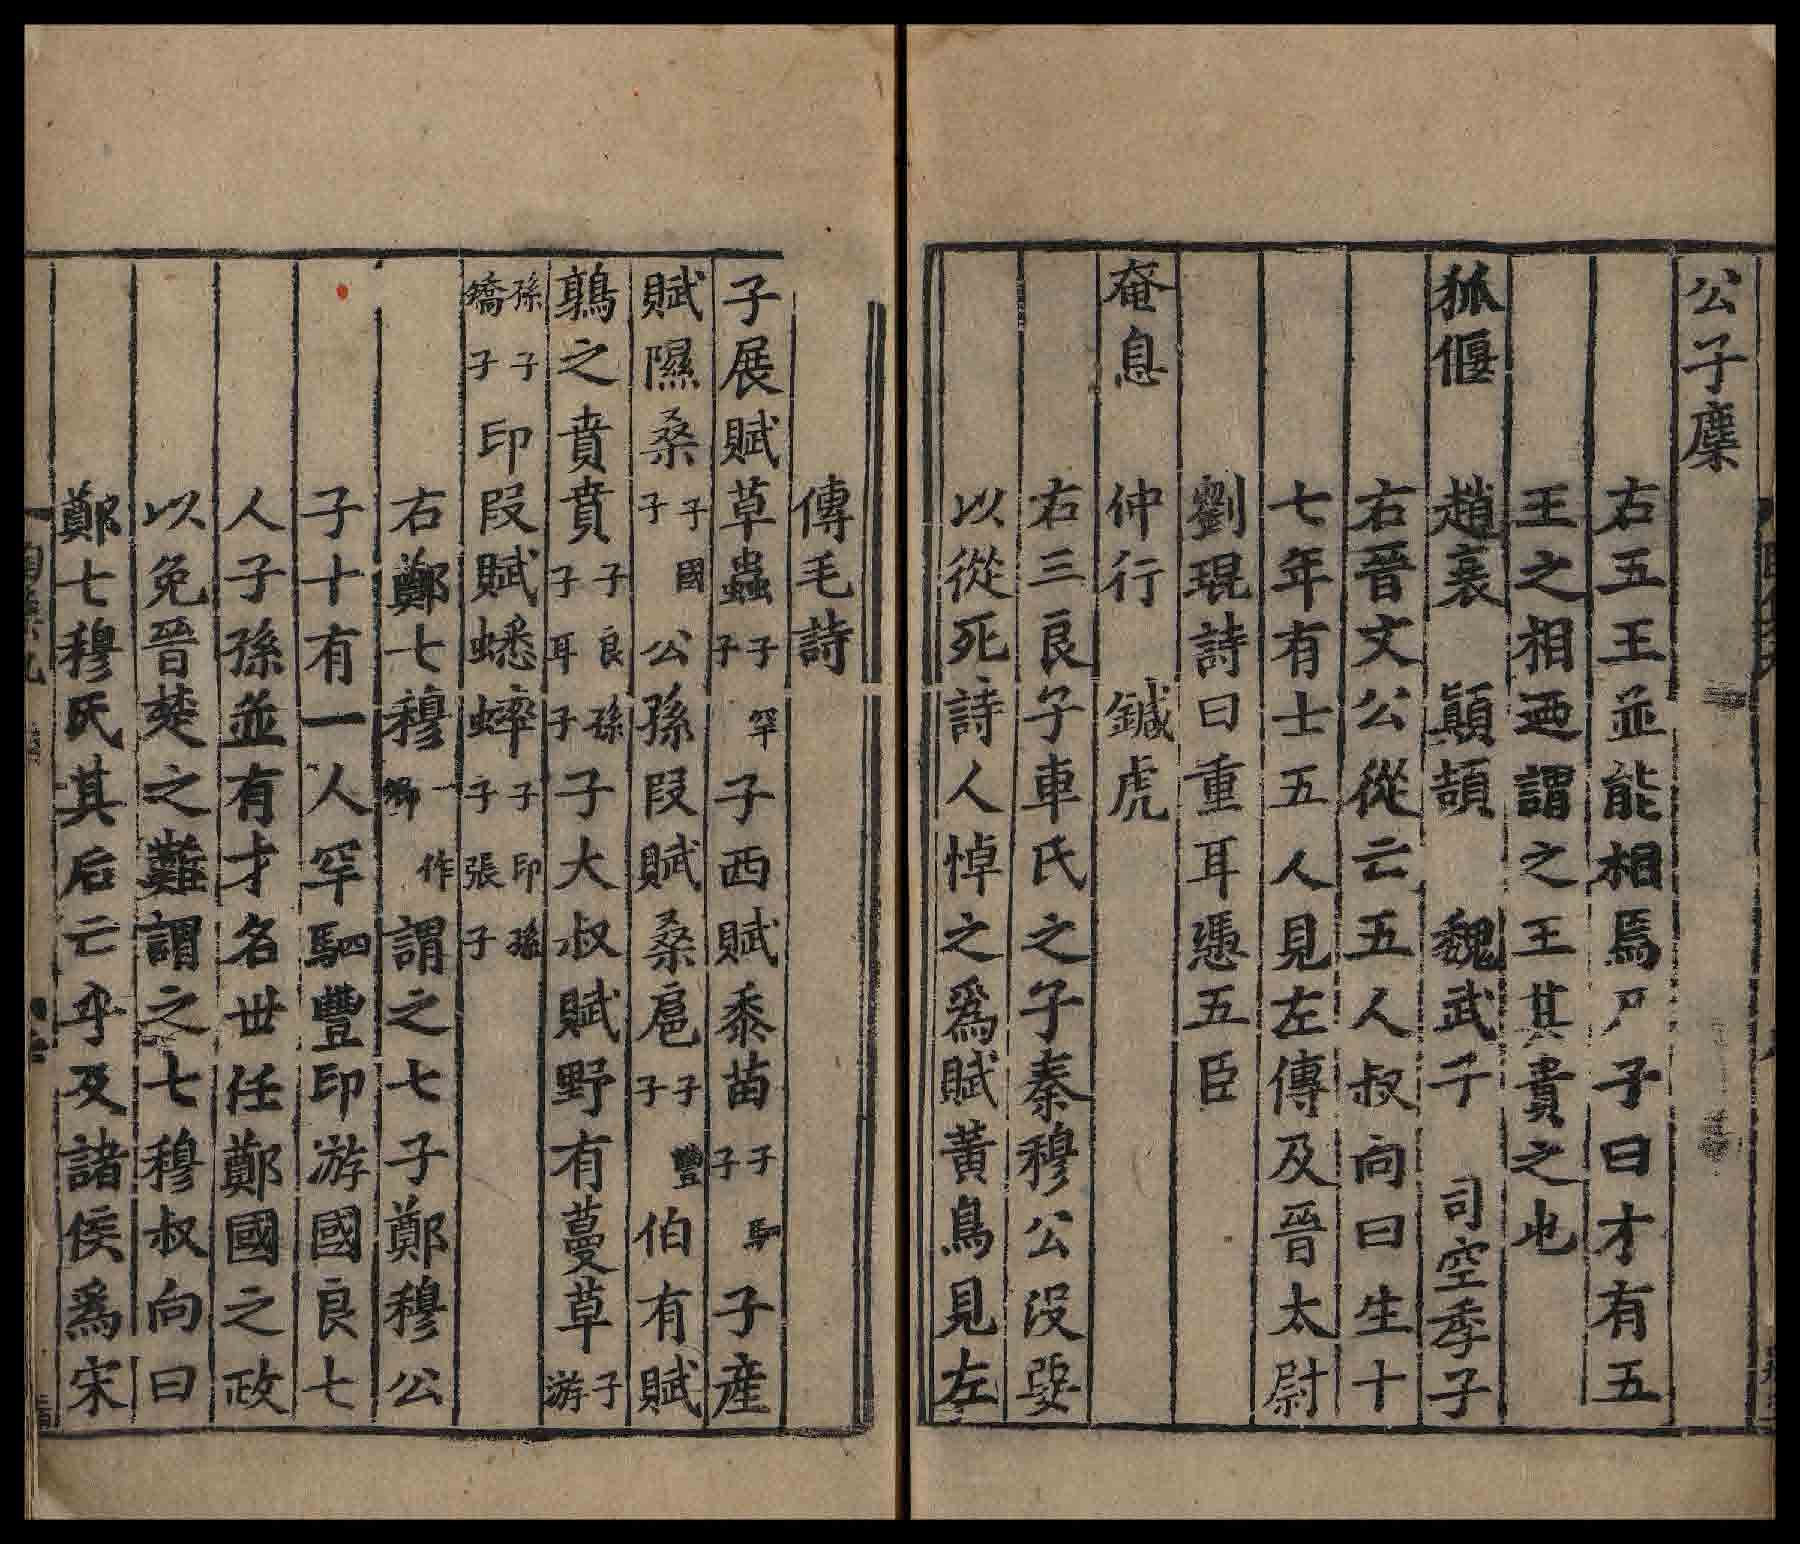 公子糜
右五王王並能相焉尸子曰才有五
王之相迺謂之王其貴之也
狐偃 趙衰 顚頡 魏武子 司空季子
右晉文公從亡五人叔向曰生十
七年有士五人見左傳及晉太尉
劉琨詩曰重耳憑五臣
奄息 仲行 鍼虎
右三良子車氏之子秦穆公沒要
以從死詩人悼之爲賦黃鳥見左
傳毛詩
子展賦草蟲子罕子子西賦黍苗子駟子子產
賦隰桑子國子公孫段賦桑扈子豐子伯有賦
鶉之賁賁子良孫子耳子子大叔賦野有蔓草子游
孫子蟜子印段賦蟋蟀子印孫子張子
右鄭七穆一作卿謂之七子鄭穆公
子十有一人罕駟豐印游國良七
人子孫並有才名世任鄭國之政
以免晉楚之難謂之七穆叔向曰
鄭七穆氏其后亡乎及諸侯爲宋